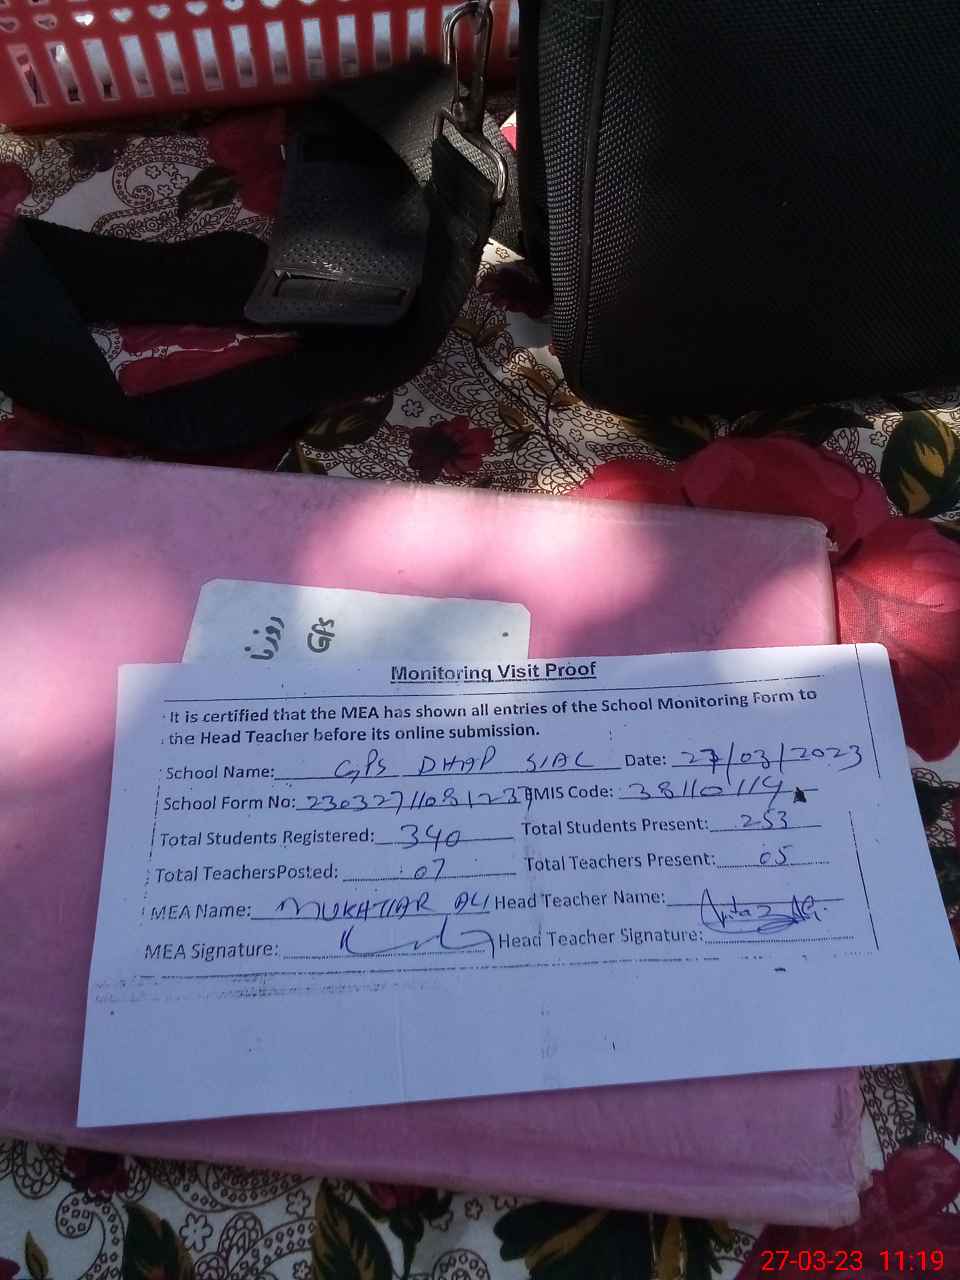 روزنا
GPS
Monitoring Visit Proof
It is certified that the MEA has shown all entries of the School Monitoring Form to
the Head Teacher before its online submission.
School Name: GPS DHAP SIAL Date: 27/03/2023
School Form No: EMIS Code: 38110114
Total Students Registered: 340 Total Students Present: 253
Total TeachersPosted: 07 Total Teachers Present: 05
MEA Name: MUKHTIAR ALI Head Teacher Name:
MEA Signature: Head Teacher Signature:
27-03-23 11:19